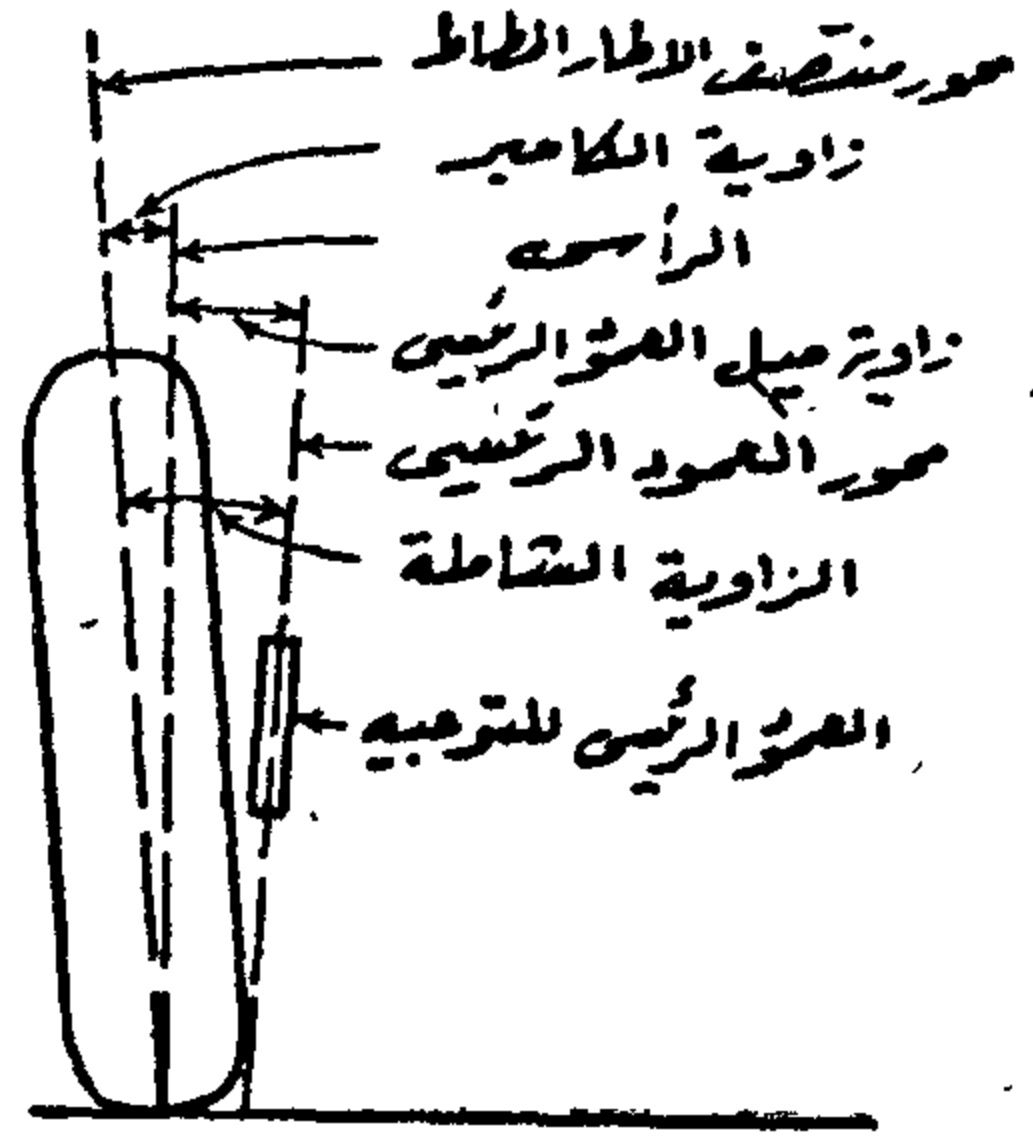 محور منتصف الاطار المطاط
زاوية الكامبر
الرأسى
زاوية ميل المحور الرئيسى
محور العمود الرئيسى
الزاوية الشاملة
المحور الرئيسى للتوجيه